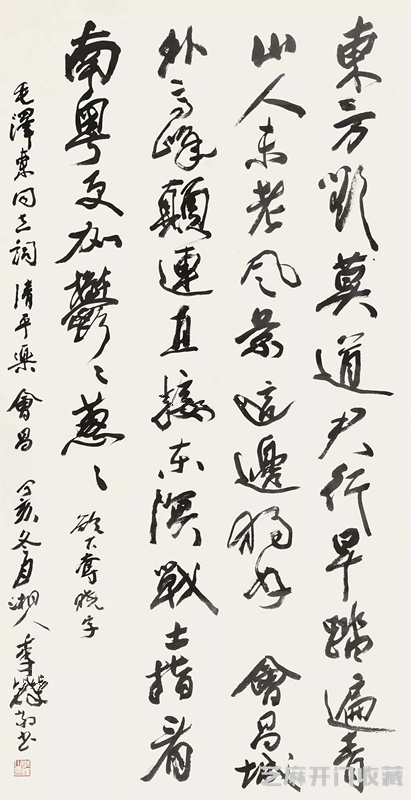 東方欲莫道君行早踏遍青
山人未老风景這邊独好 會昌城
外高峰顛連直接东溟戰士指看
南粵更加鬱〻蔥〻
欲下奪曉字
毛澤東同志詞清平樂會昌 丁亥冬月湘人李鐸敬书
芝麻开门收藏